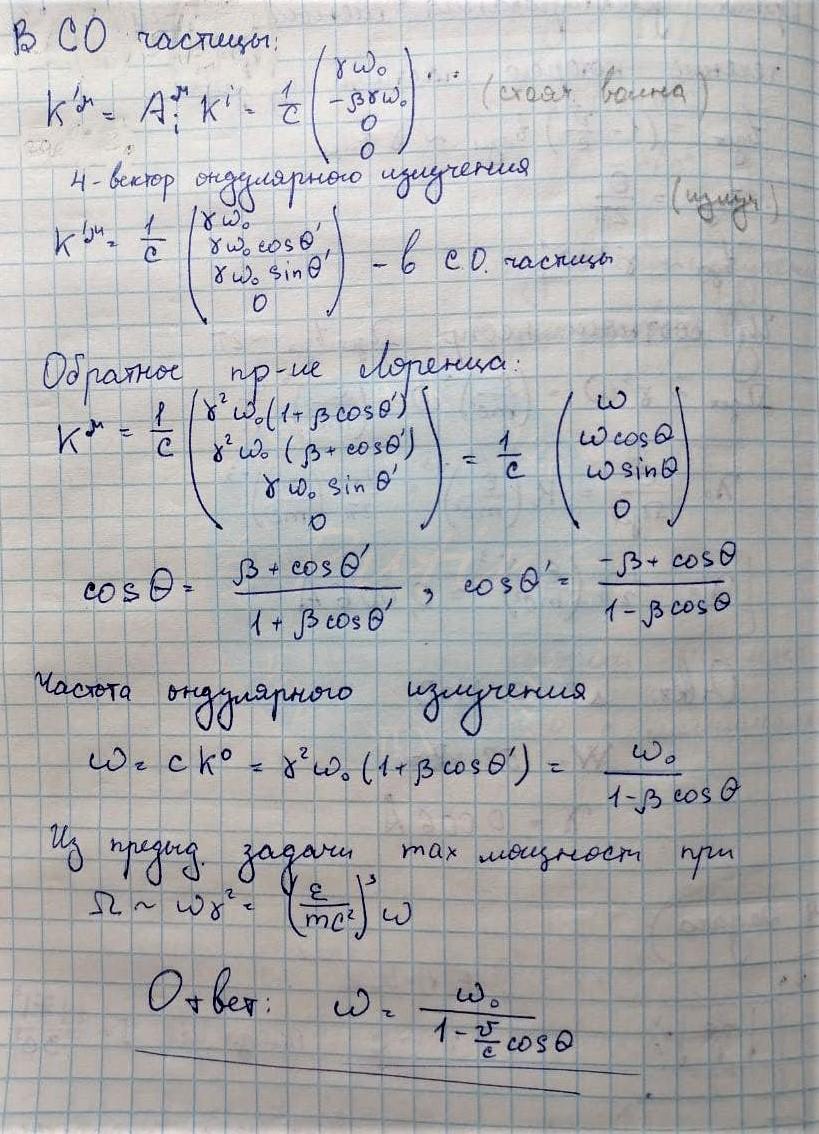 В СО частицы:
K'^μ = A_i^μ K^i = 1/c (γω₀; -βγω₀; 0; 0) (стоят волна)
4-вектор ондулярного излучения
K'^μ = 1/c (γω₀; γω₀ cosθ'; γω₀ sinθ'; 0) - в С.О. частицы (излуч)
Обратное пр-ие Лоренца:
K^μ = 1/c (γ²ω₀(1+βcosθ'); γ²ω₀(β+cosθ'); γω₀ sinθ'; 0) = 1/c (ω; ωcosθ; ωsinθ; 0)
cosθ = (β + cosθ')/(1 + βcosθ'), cosθ' = (-β + cosθ)/(1 - βcosθ)
Частота ондулярного излучения
ω = cK⁰ = γ²ω₀(1+βcosθ') = ω₀/(1-βcosθ)
Из предыд. задачи max мощности при
Ω ~ ωγ² = (ε/mc²)³ ω
Ответ: ω = ω₀/(1 - v/c cosθ)